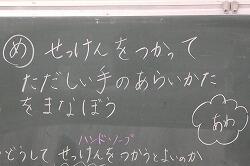 め せっけんをつかって
ただしい手のあらいかた
をまなぼう
あわ
ハンドソープ
どうして せっけんをつかうとよいのか